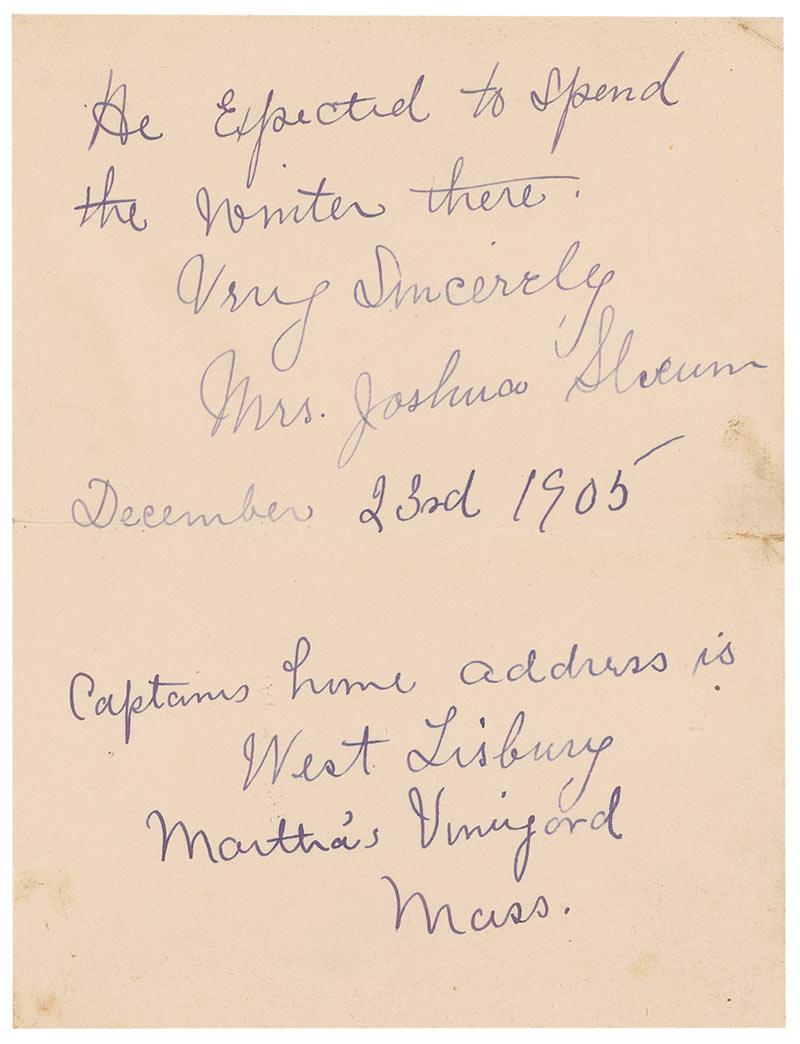 He Expected to Spend
the Winter there.
Very Sincerely
Mrs. Joshua Slocum
December 23rd 1905
Captains home address is
West Tisbury
Martha's Vineyard
Mass.